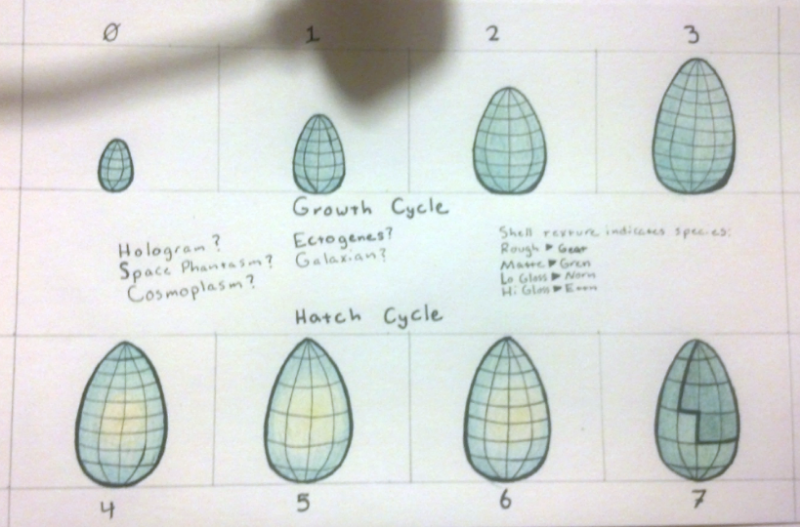 0 1 2 3
Growth Cycle
Hologram?
Space Phantasm?
Cosmoplasm?
Ectogenes?
Galaxian?
Shell texture indicates species:
Rough ▶
Matte ▶ Gren
Lo Gloss ▶ Norn
Hi Gloss ▶
Hatch Cycle
4 5 6 7